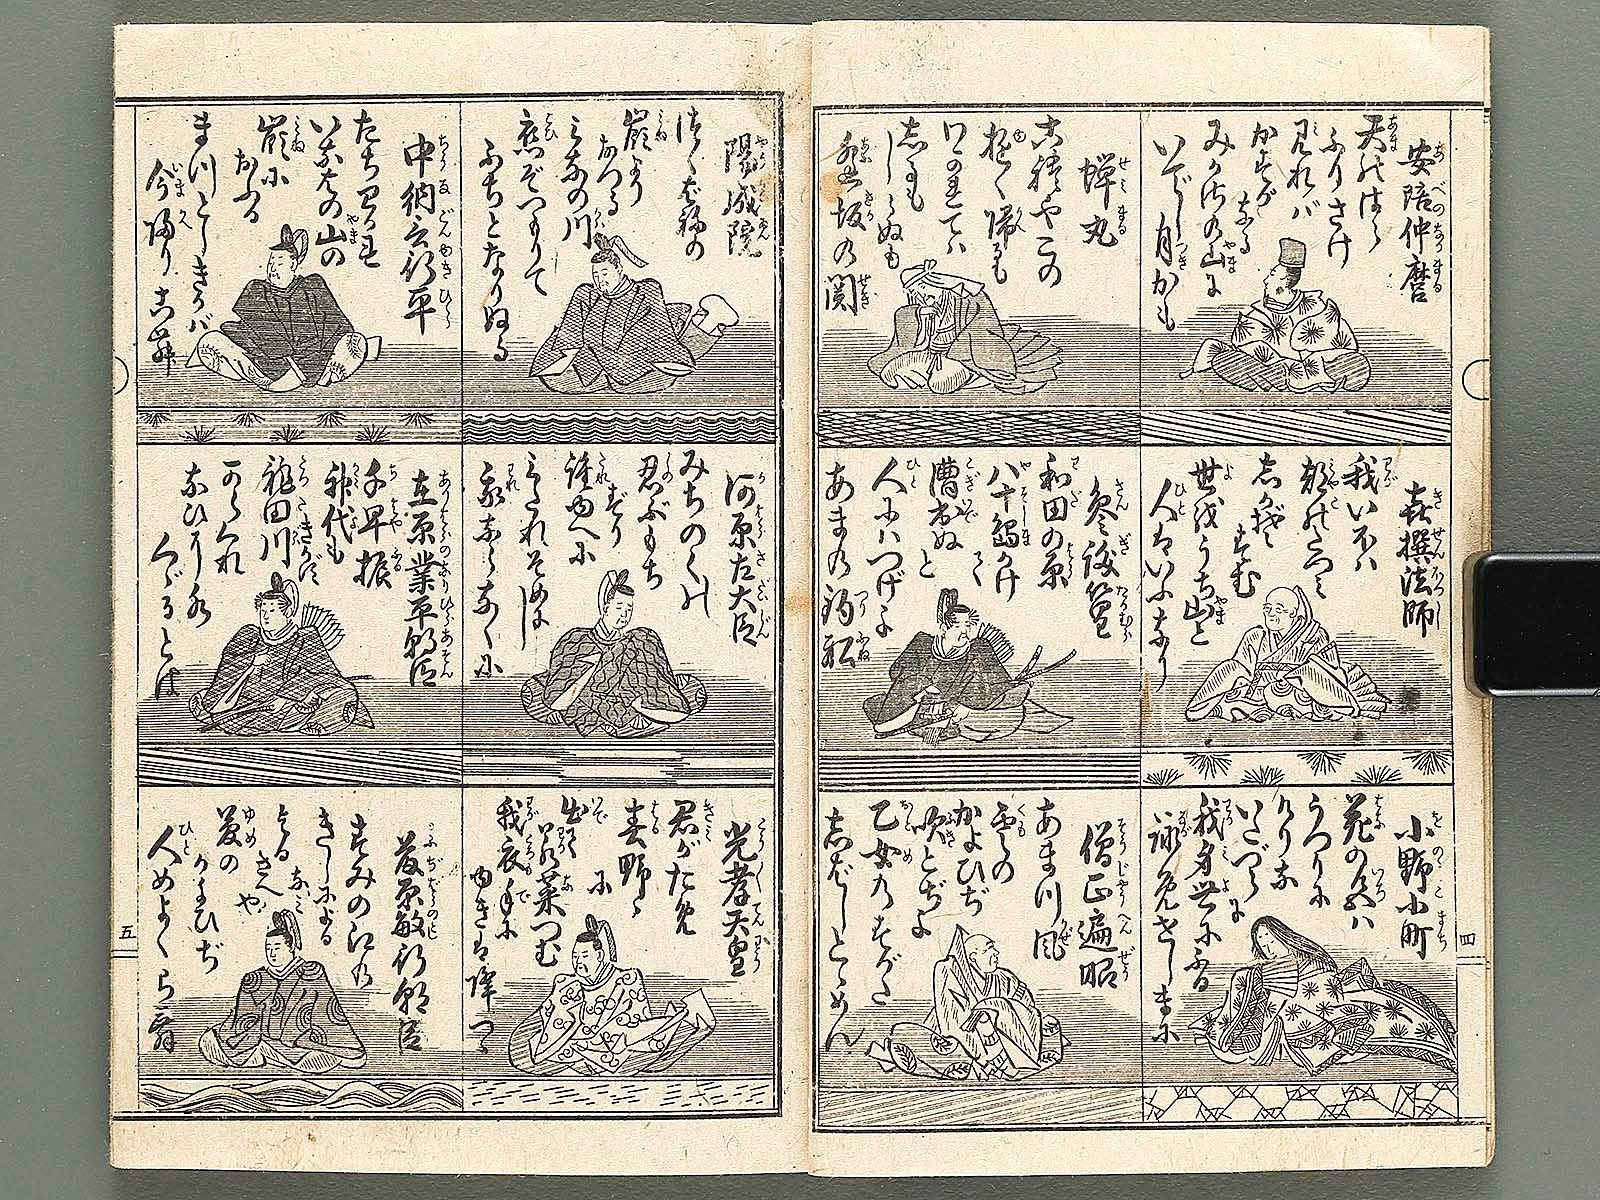 安陪仲麿
天の原
ふりさけ
見れバ
かすが
なる
みかさの山に
いでし月かも
喜撰法師
我いほハ
都のたつミ
しかぞ
すむ
世をうぢ山と
人はいふなり
小野小町
花の色ハ
うつりに
けりな
いたづらに
我身世にふる
詠めせしまに
蝉丸
これやこの
ゆくも帰るも
わかれてハ
しるも
しらぬも
逢坂の関
参議篁
和田の原
八十嶋かけ
て
漕出ぬ
と
人にハつげよ
あまの釣船
僧正遍昭
あまつ風
雲の
かよひぢ
吹とぢよ
乙女のすがた
しばしとゞめん
陽成院
つくばねの
嶺より
おつる
みなの川
恋ぞつもりて
ふちとなりぬる
河原左大臣
みちのくの
忍ぶもぢ
ずり
誰ゆへに
みだれそめにし
我ならなくに
光孝天皇
君がため
春野に
出て
若菜つむ
我衣手に
ゆきは降つゝ
中納言行平
たちわかれ
いなばの山の
嶺に
おふる
まつとしきかバ
今帰りこむ
在原業平朝臣
千早振
神代も
きかず
龍田川
からくれ
なゐに水
くゞるとは
藤原敏行朝臣
すみの江の
きしによる
なミ
よる
さへや
夢の
かよひぢ
人めよくらむ
四
五